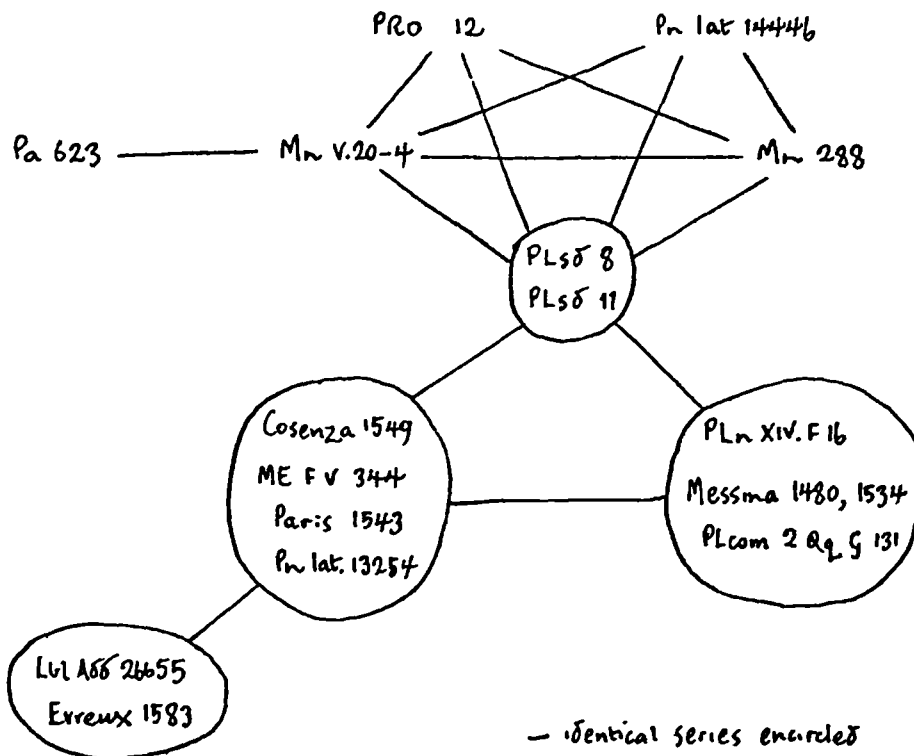 PRO 12
Pn lat 14446
Pa 623
Mn V.20-4
Mn 288
PLsd 8
PLsd 11
Cosenza 1549
ME F V 344
Paris 1543
Pn lat. 13254
PLn XIV.F 16
Messina 1480, 1534
PLcom 2 Qq G 131
Lbl Add 26655
Evreux 1583
— identical series encircled